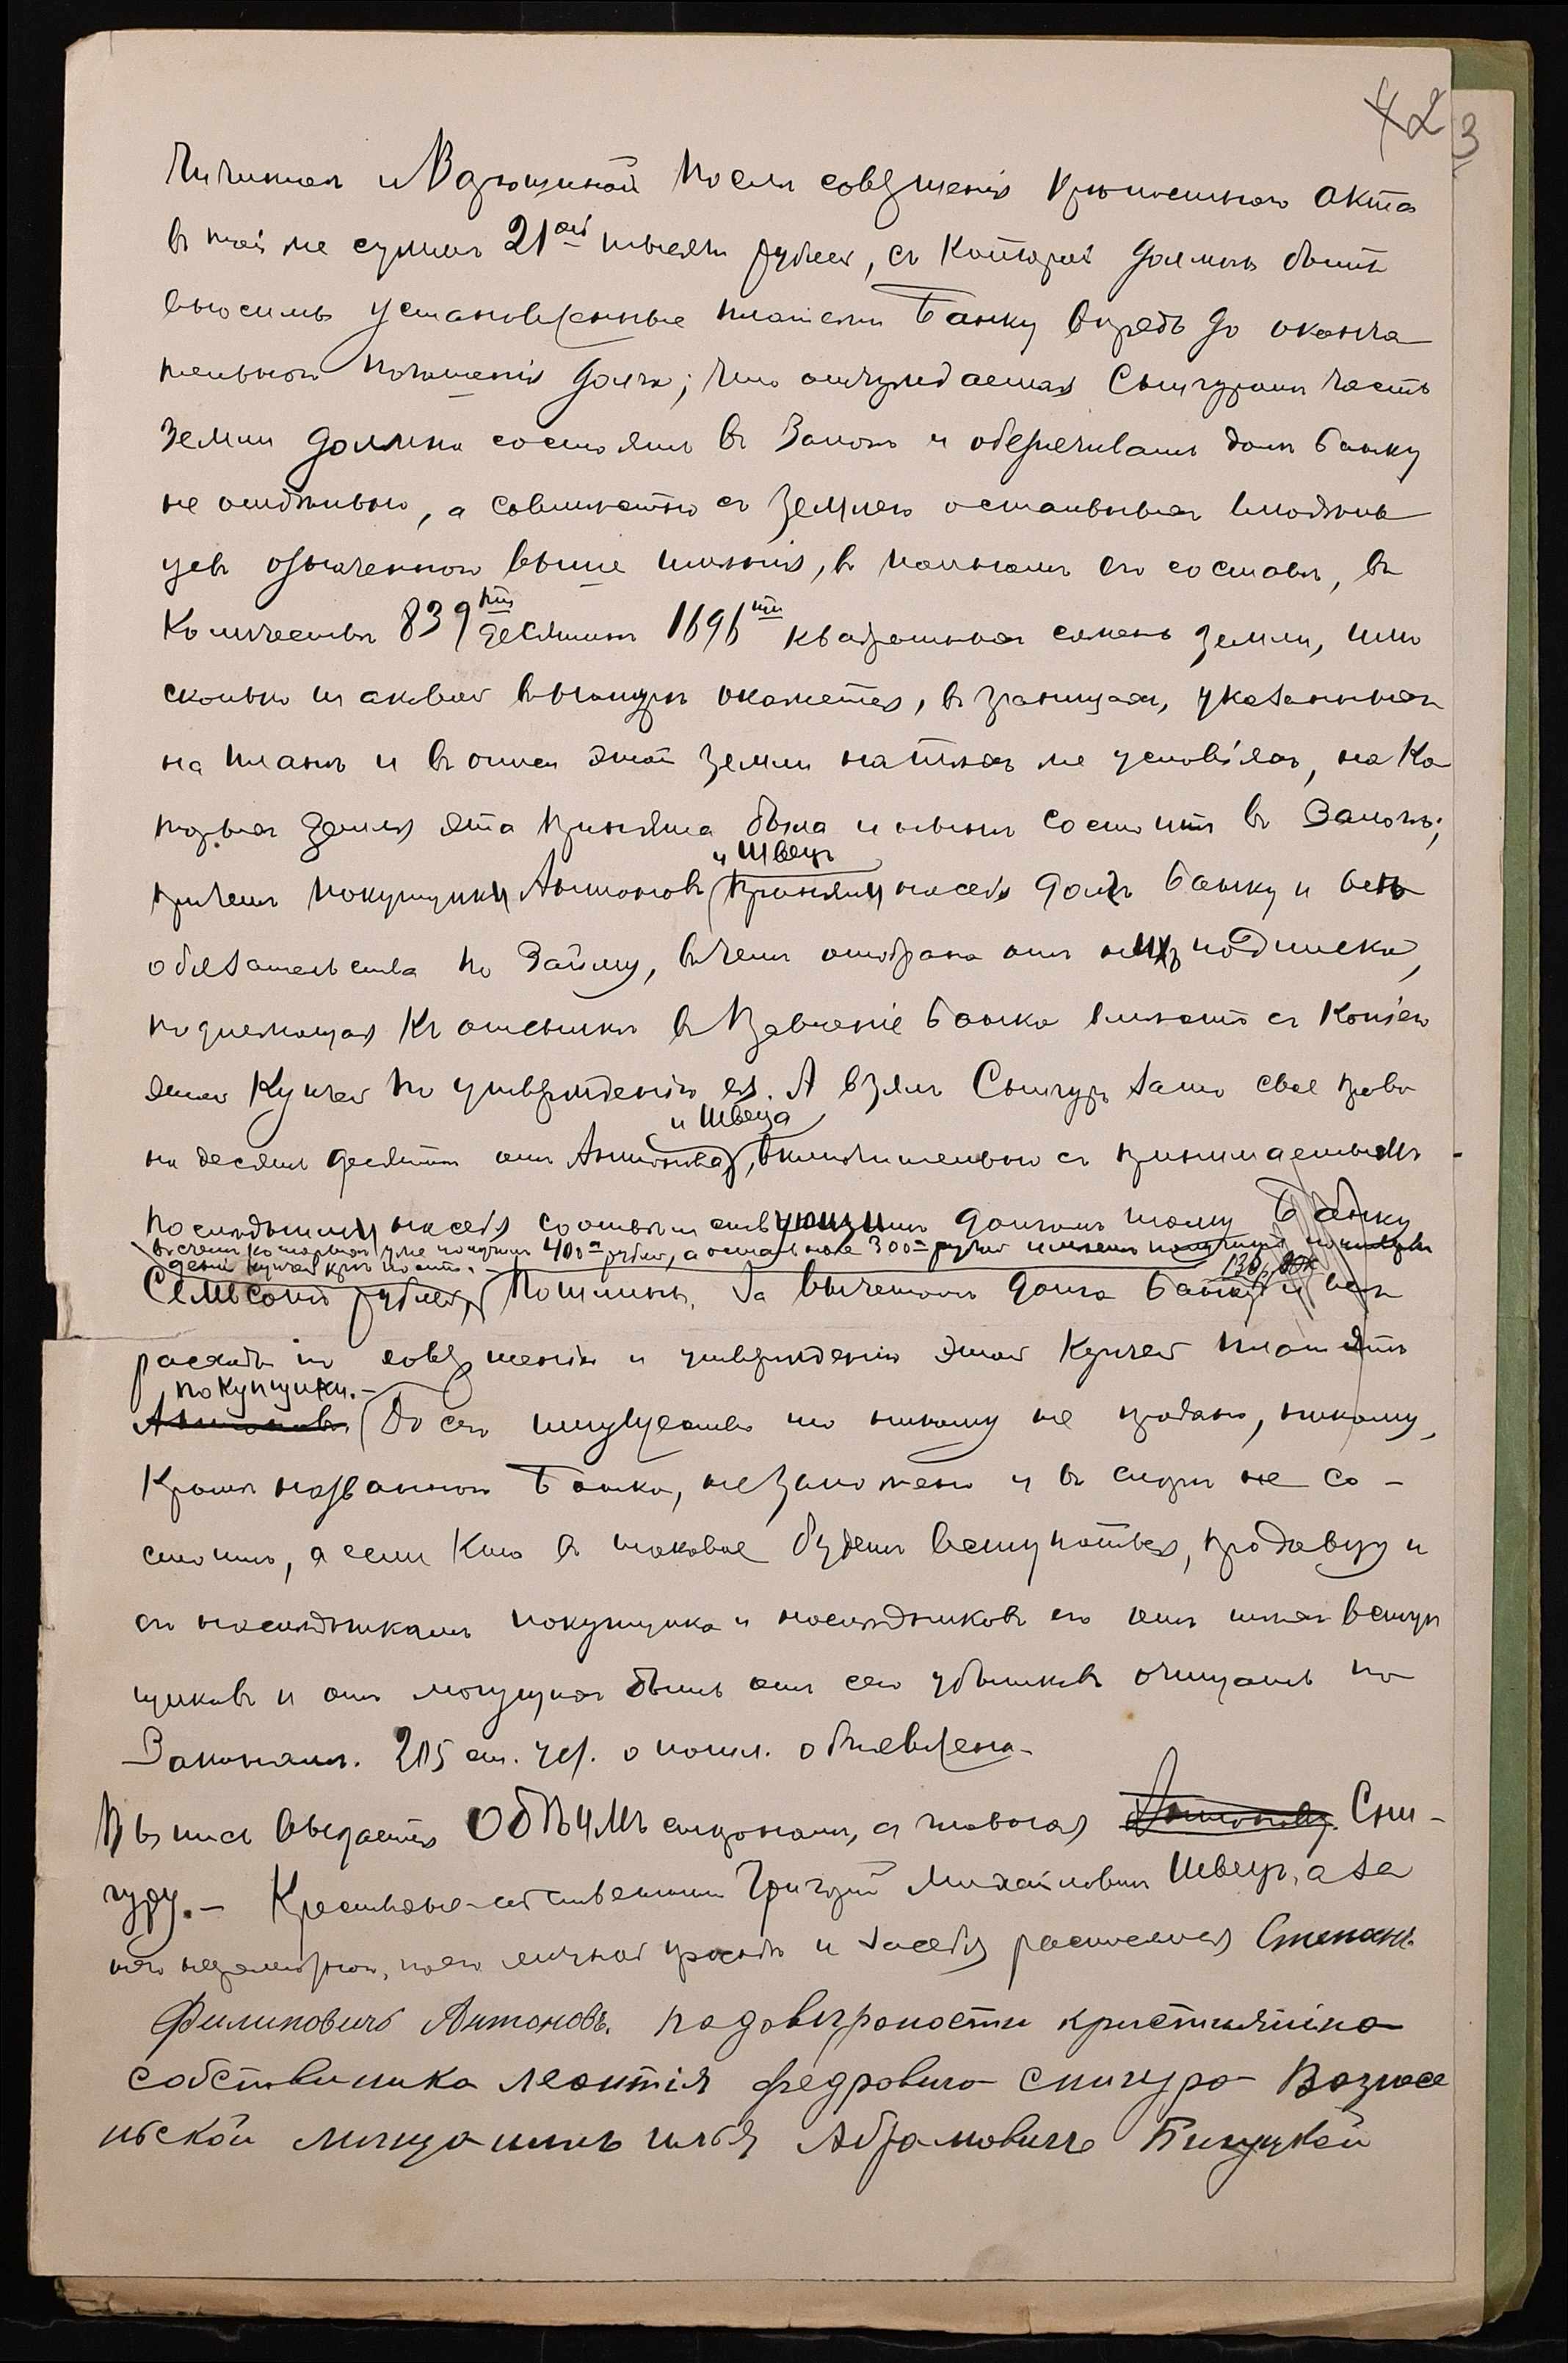 42 3
после совершенія крѣпостного акта
въ той же суммѣ 21ой тысячи рублей, съ которой долженъ быть
вносимъ установленные платежи Банку впредь до оконча
тельнаго погашенія долга; что отчуждаемая Снигуромъ часть
земли должна состоять въ залогѣ и обезпечивать долгъ банку
не отдѣльно, а совмѣстно съ землею остальныхъ владѣль
цевъ означеннаго выше имѣнія, въ полномъ его составѣ, въ
количествѣ 839ти десятинъ 1696ти квадратныхъ сажень земли, или
сколько таковой въ натурѣ окажется, въ границахъ, указанныхъ
на планѣ и въ описи этой земли на тѣхъ же условіяхъ, на ко
торыхъ земля эта принята была и нынѣ состоитъ въ залогѣ;
и Швецъ
причемъ покупщики Антоновъ приняли на себя долгъ банку и всѣ
обязательства по займу, въ чемъ отобрана отъ нихъ подписка,
подлежащая къ отсылкѣ въ Правленіе банка вмѣстѣ съ копіею
этой купчей по утвержденіи ея. А взялъ Снигуръ за то свое право
и Швеца
на десять десятинъ отъ Антонова, включительно съ принимаемымъ
послѣдними на себя соотвѣтствующимъ долгомъ тому Банку
въ счетъ которыхъ уже получилъ 400 рублей, а остальные 300 рублей имѣетъ получить
Семьсотъ рублей, Пошлины, за вычетомъ долга банку и всѣ
расходы по совершенію и утвержденію этой купчей платятъ
покупщики.-
Антоновъ До сего имущество то никому не продано, никому,
кромѣ названнаго Банка, не заложено и въ спорѣ не со-
стоитъ, а если кто въ таковое будетъ вступаться, продавцу и
его наслѣдникамъ покупщика и наслѣдниковъ его отъ тѣхъ вступ
щиковъ и отъ могущихъ быть отъ сего убытковъ очищать по
Законамъ. 205 ст. уст. о пошл. объявлена.-
Выпись выдается обѣимъ сторонамъ, а главная Антонову. Сни-
гуру.- Крестьяне-собственники Григорій Михайловичъ Швецъ, а за
него неграмотнаго, по его личной просьбѣ и за себя росписался Степанъ
Филиповичъ Антоновъ. по довѣрености
собствиника леонтія федровича снигура Вознесе
нской мищанинъ Абрамовичъ